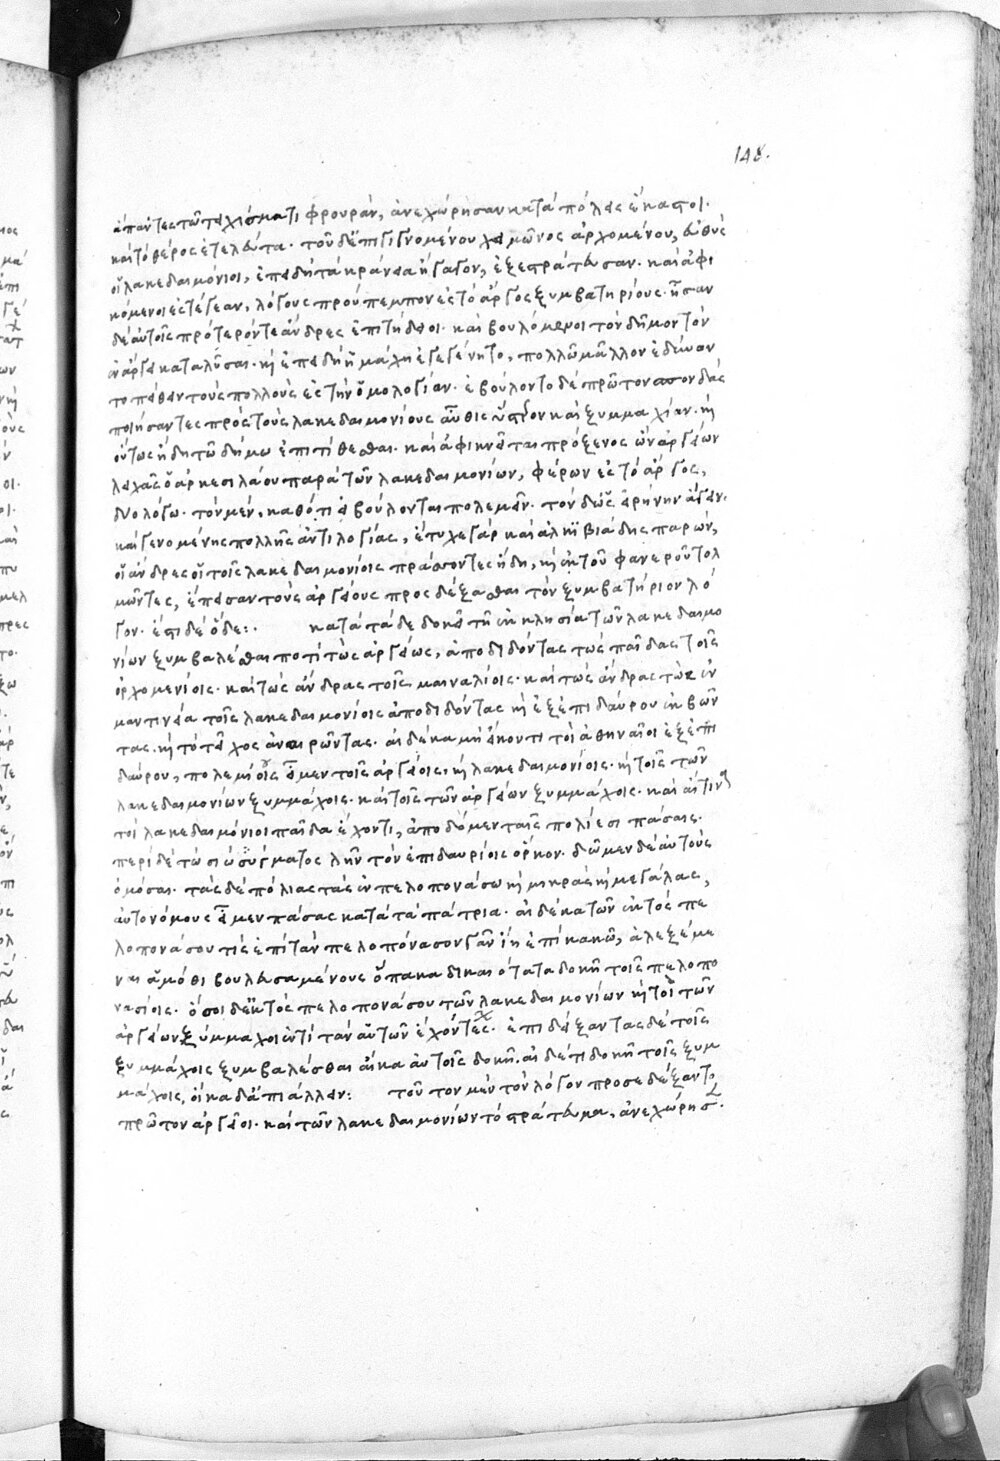 148.
ἅπαντες τῶ τειχίσματι φρουρὰν, ἀνεχώρησαν κατὰ πόλεις ἕκαστοι.
καὶ τὸ θέρος ἐτελεύτα. τοῦ δ᾽ ἐπιγιγνομένου χειμῶνος ἀρχομένου, εὐθὺς
οἱ λακεδαιμόνιοι, ἐπειδὴ τὰ κράνεια ἤγαγον, ἐξεστράτευσαν. καὶ ἀφι
κόμενοι ἐς τέγεαν, λόγους προύπεμπον ἐς τὸ ἄργος ξυμβατηρίους. ἦσαν
δὲ αὐτοῖς πρότερόν τε ἄνδρες ἐπιτήδειοι. καὶ βουλόμενοι τὸν δῆμον τὸν
ἐν ἄργει καταλῦσαι. καὶ ἐπειδὴ ἡ μάχη ἐγεγένητο, πολλῶ μᾶλλον ἐδύναν
το πείθειν τοὺς πολλοὺς ἐς τὴν ὁμολογίαν. ἐβούλοντο δὲ πρῶτον σπονδὰς
ποιήσαντες πρὸς τοὺς λακεδαιμονίους αὖθις ὕστερον καὶ ξυμμαχίαν. καὶ
οὕτως ἤδη τῶ δήμω ἐπιτίθεσθαι. καὶ ἀφικνεῖται πρόξενος ὢν ἀργείων
λίχας ὁ ἀρκεσιλάου παρὰ τῶν λακεδαιμονίων, φέρων ἐς τὸ ἄργος,
δύο λόγω. τὸν μὲν, καθότι εἰ βούλονται πολεμεῖν. τὸν δ᾽ ὡς εἰρήνην ἄγειν.
καὶ γενομένης πολλῆς ἀντιλογίας, ἔτυχε γὰρ καὶ ἀλκιβιάδης παρών,
οἱ ἄνδρες οἱ τοῖς λακεδαιμονίοις πράσσοντες ἤδη, καὶ ἐκ τοῦ φανεροῦ τολ
μῶντες, ἔπεισαν τοὺς ἀργείους προσδέξασθαι τὸν ξυμβατήριον λό
γον. ἔστι δὲ ὅδε:. κατὰ τάδε δοκεῖ τῆ ἐκκλησία τῶν λακεδαιμο
νίων ξυμβαλέσθαι ποτὶ τὼς ἀργείως, ἀποδιδόντας τὼς παῖδας τοῖς
ὀρχομενίοις. καὶ τὼς ἄνδρας τοῖς μαιναλίοις. καὶ τὼς ἄνδρας τὼς ἐν
μαντινεία τοῖς λακεδαιμονίοις ἀποδιδόντας καὶ ἐξ ἐπιδαύρου ἐκβῶν
τας. καὶ τὸ τεῖχος ἀναιροῦντας. αἰ δέ κα μὴ εἴκοντι τοὶ ἀθηναῖοι ἐξ ἐπι
δαύρου, πολεμίους εἶμεν τοῖς ἀργείοις. καὶ λακεδαιμονίοις. καὶ τοῖς τῶν
λακεδαιμονίων ξυμμάχοις. καὶ τοῖς τῶν ἀργείων ξυμμάχοις. καὶ αἴ τινα
τοὶ λακεδαιμόνιοι παῖδα ἔχοντι, ἀποδόμεν ταῖς πολίεσι πάσαις.
περὶ δὲ τῶ σιῶ σύματος λῆν τὸν ἐπιδαυρίοις ὅρκον. δῶμεν δὲ αὐτοὺς
ὀμόσαι. τὰς δὲ πόλιας τὰς ἐν πελοπονάσω καὶ μικρὰς καὶ μεγάλας,
αὐτονόμους εἶμεν πάσας κατὰ τὰ πάτρια. αἰ δέ κα τῶν ἐκτὸς πε
λοπονάσου τὶς ἐπὶ τὰν πελοπόνασον γᾶν ἴῃ ἐπὶ κακῶ, ἀλεξέμε
ναι ἁμόθι βουλευσαμένους ὅπα κα δικαιότατα δοκῆ τοῖς πελοπο
νασίοις. ὅσοι δ᾽ ἐκτὸς πελοπονάσου τῶν λακεδαιμονίων καὶ τοὶ τῶν
ἀργείων ξύμμαχοι ἐντὶ τὰν αὐτῶν ἔχοντες. ἐπιδείξαντας δὲ τοῖς
ξυμμάχοις ξυμβαλέσθαι αἴ κα αὐτοῖς δοκῆ. αἰ δέ τι δοκῆ τοῖς ξυμ
μάχοις, οἴκαδ᾽ ἀπιάλλειν: τοῦτον μὲν τὸν λόγον προσεδέξαντο
πρῶτον ἀργεῖοι. καὶ τῶν λακεδαιμονίων τὸ στράτευμα, ἀνεχώρησεν.